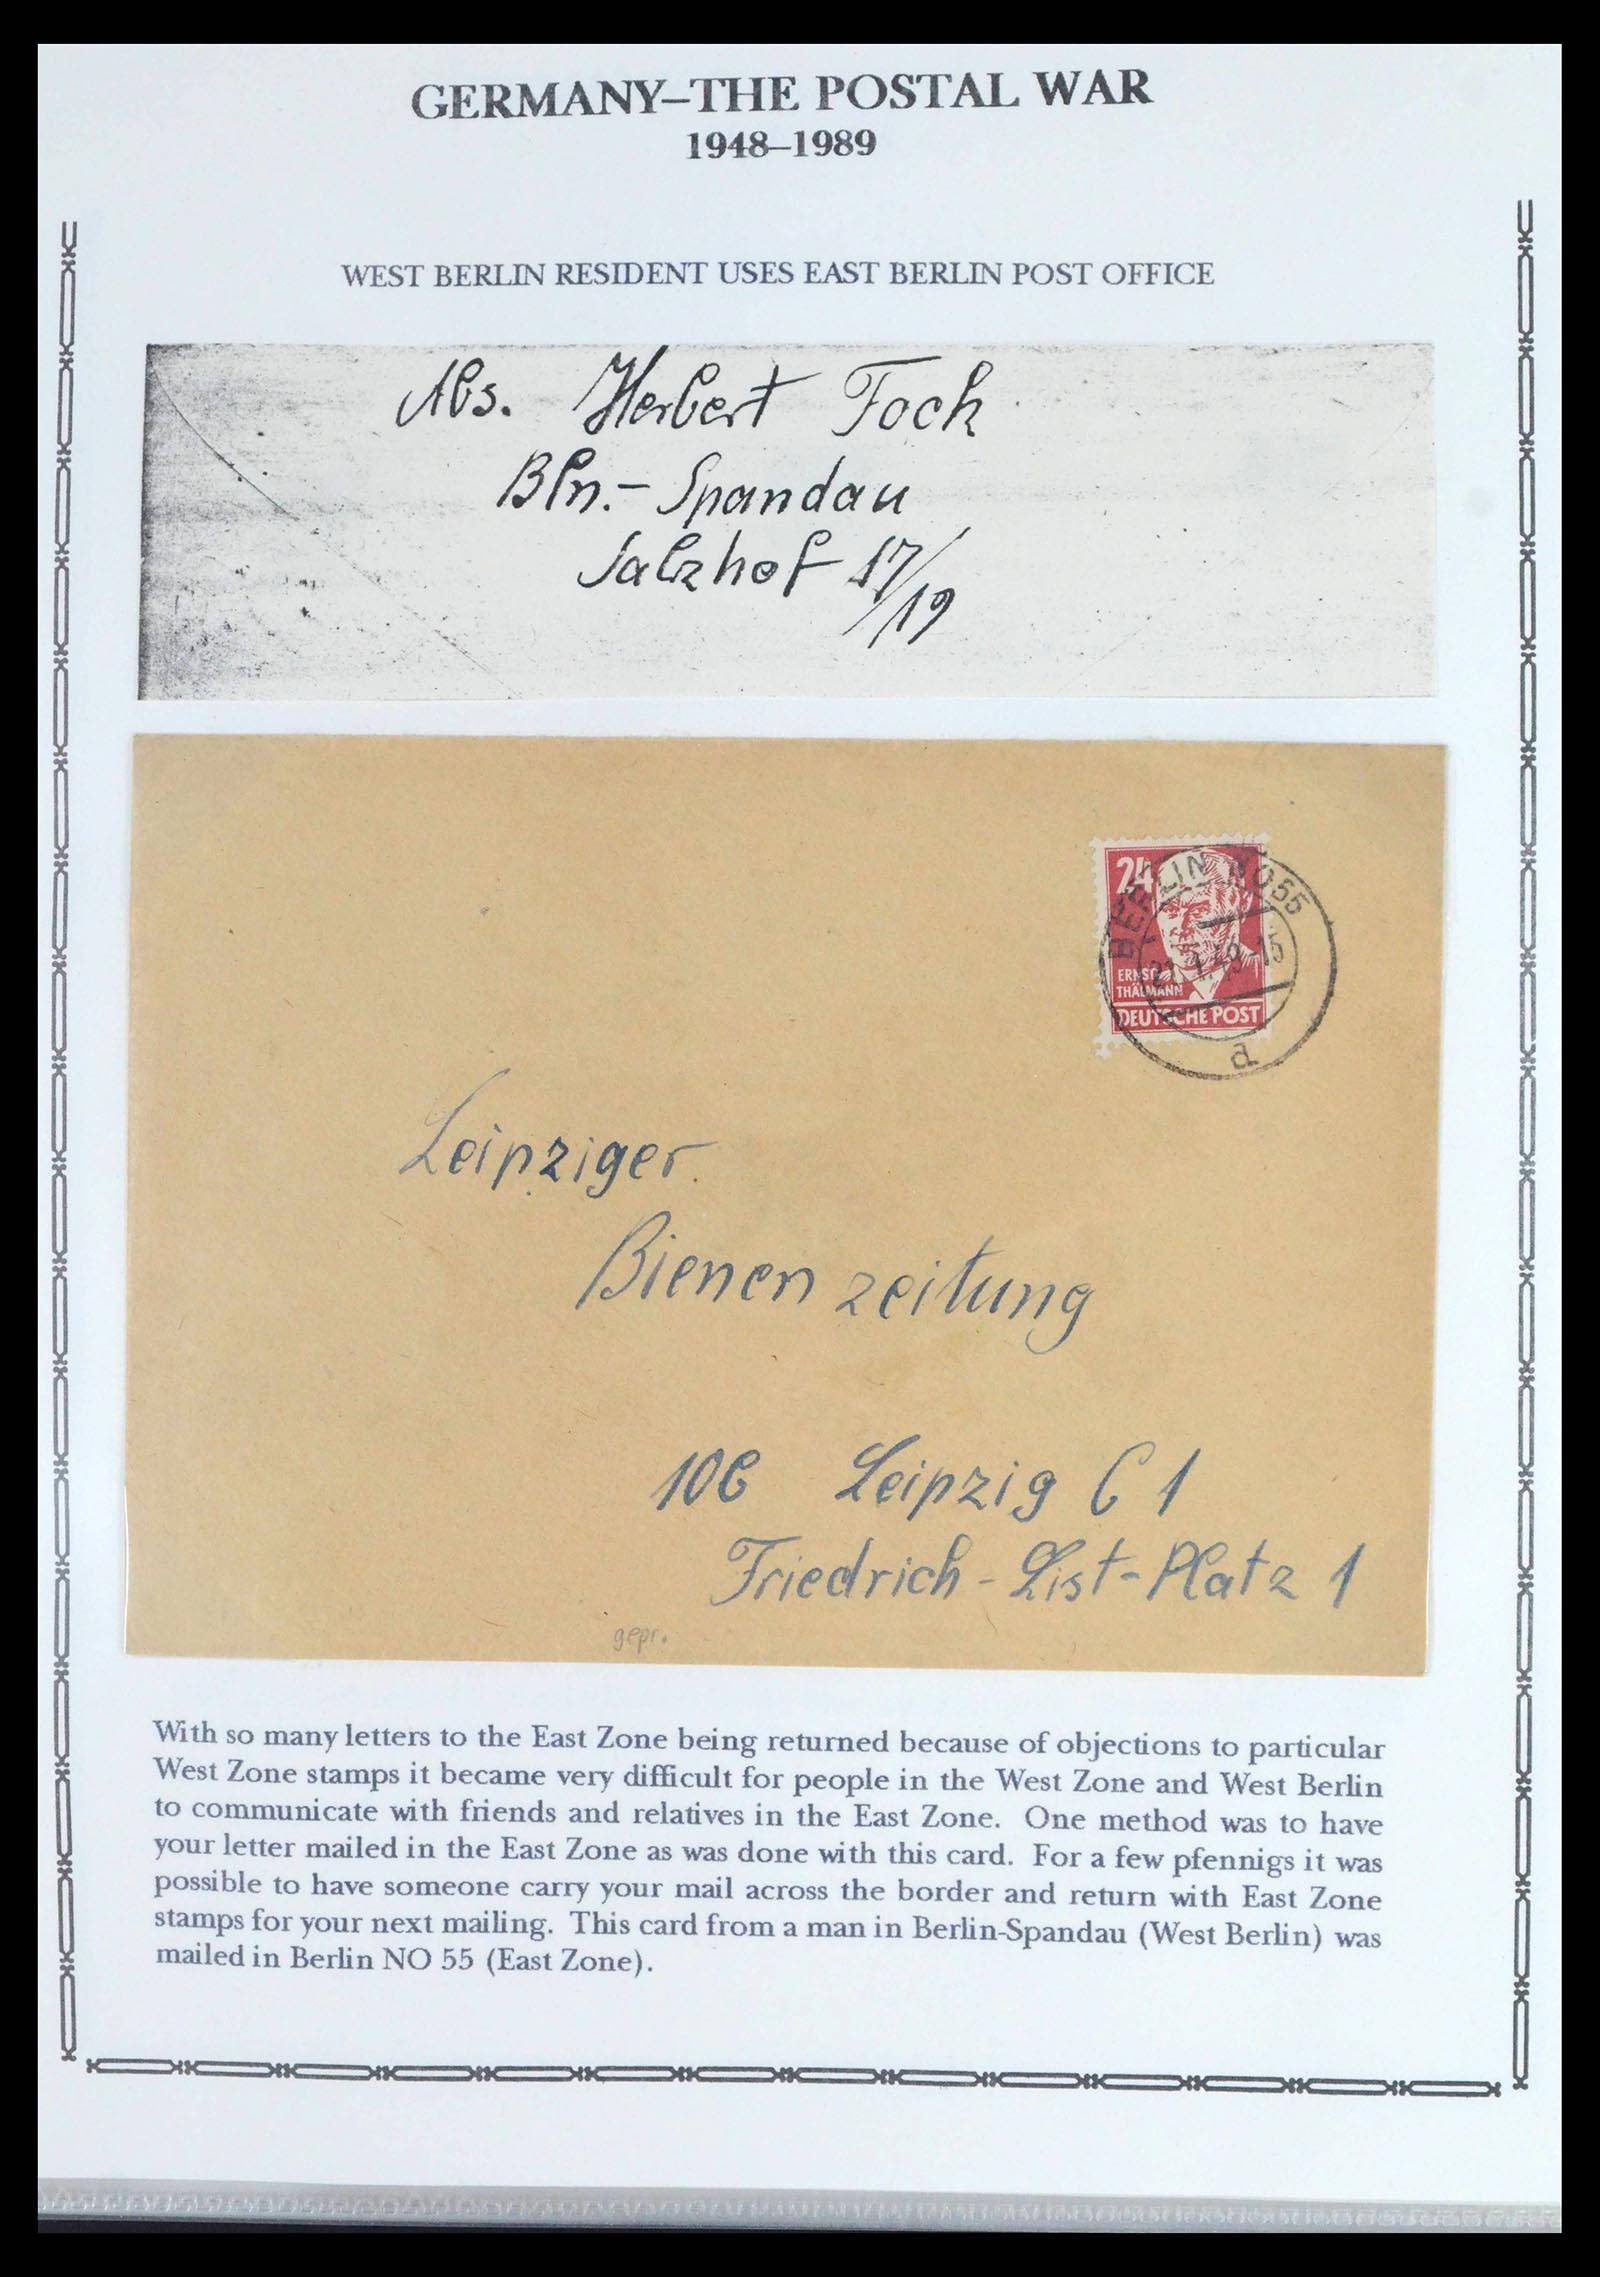 GERMANY–THE POSTAL WAR
1948–1989
WEST BERLIN RESIDENT USES EAST BERLIN POST OFFICE
Abs. Herbert Fock
Bln.- Spandau
Salzhof 17/19
24
ERNST
THÄLMANN
DEUTSCHE POST
BERLIN NO55
49-15
a
Leipziger
Bienenzeitung
10b Leipzig C 1
Friedrich-List-Platz 1
gepr.
With so many letters to the East Zone being returned because of objections to particular
West Zone stamps it became very difficult for people in the West Zone and West Berlin
to communicate with friends and relatives in the East Zone. One method was to have
your letter mailed in the East Zone as was done with this card. For a few pfennigs it was
possible to have someone carry your mail across the border and return with East Zone
stamps for your next mailing. This card from a man in Berlin-Spandau (West Berlin) was
mailed in Berlin NO 55 (East Zone).